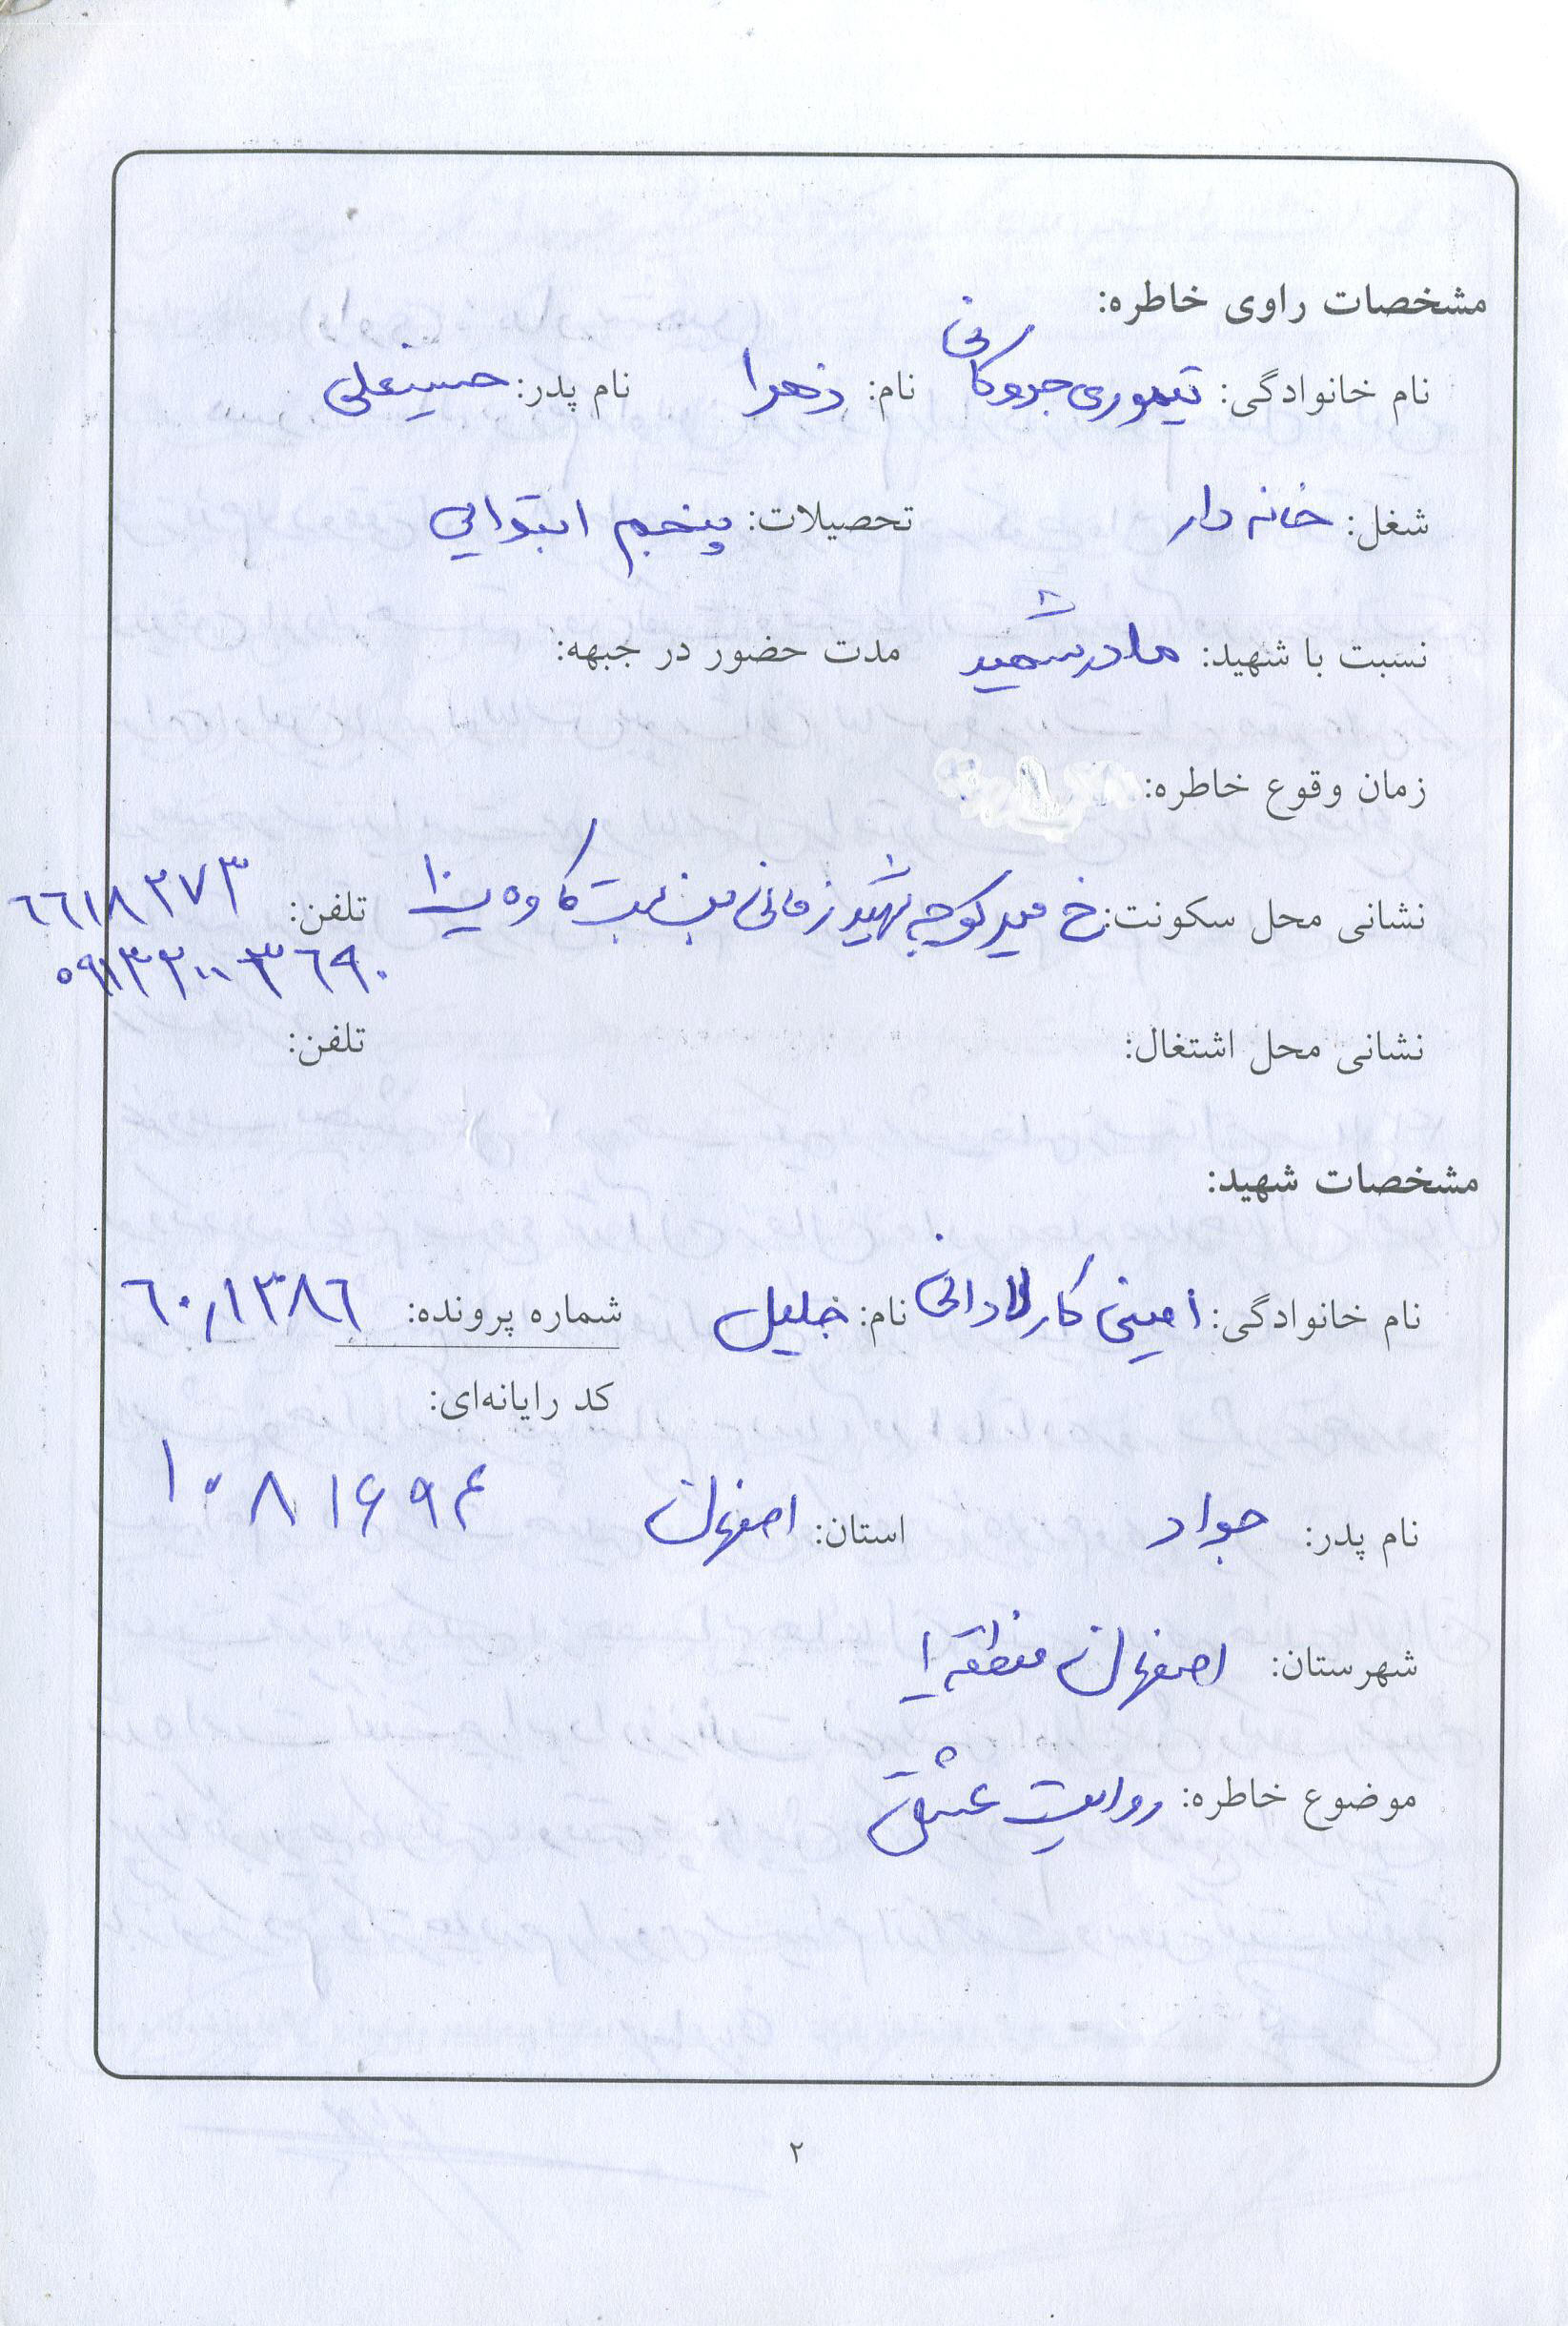 مشخصات راوی خاطره:
نام خانوادگی: تیموری جروکانی نام: زهرا نام پدر: حسینعلی
شغل: خانه دار تحصیلات: پنجم ابتدایی
نسبت با شهید: مادر شهید مدت حضور در جبهه:
زمان وقوع خاطره:
نشانی محل سکونت: خ میر کوچه شهید زمانی بن بست کاوه پ ۱۰ تلفن: ۶۶۱۸۲۷۳
۰۹۱۳۳۰۰۳۶۹۰
نشانی محل اشتغال: تلفن:
مشخصات شهید:
نام خانوادگی: امینی کارلادانی نام: خلیل شماره پرونده: ۶۰/۱۳۸۶
کد رایانه‌ای:
۱۰۸۱۶۹۴
نام پدر: جواد استان: اصفهان
شهرستان: اصفهان منطقه ۱
موضوع خاطره: روایت عشق
۲